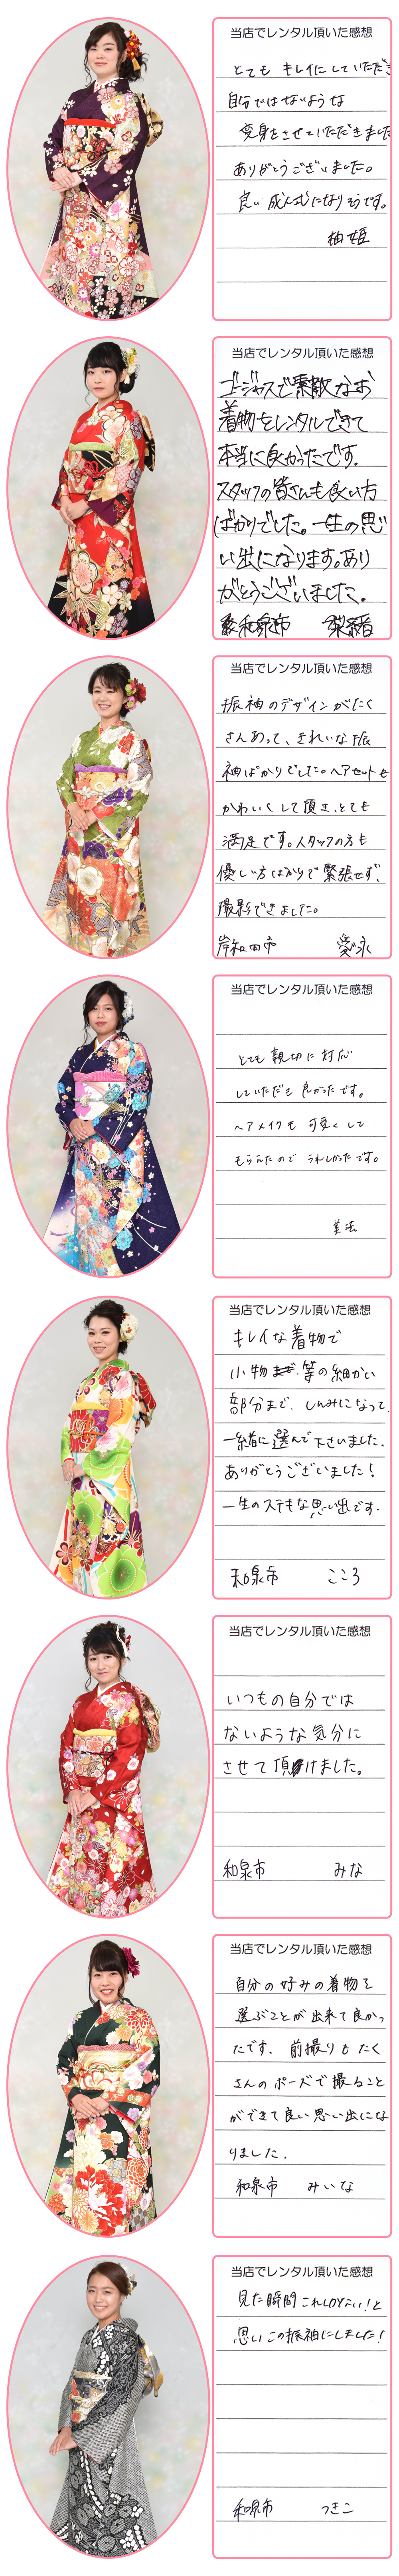 当店でレンタル頂いた感想
とても キレイにしていただき
自分ではないような
変身をさせていただきました
ありがとうございました。
良い 成人式になりそうです。
柚姫
当店でレンタル頂いた感想
ゴージャスで素敵なお
着物をレンタルできて
本当に良かったです。
スタッフの皆さんも良い方
ばかりでした。一生の思
い出になります。あり
がとうございました。
和泉市 梨香
当店でレンタル頂いた感想
振袖のデザインがたく
さんあって、きれいな振
袖ばかりでした。ヘアセットも
かわいくして頂き、とても
満足です。スタッフの方も
優しい方ばかりで緊張せず、
撮影できました。
岸和田市 愛永
当店でレンタル頂いた感想
とても 親切に 対応
していただき 良かったです。
ヘアメイクも 可愛くして
もらえたので うれしかったです。
美法
当店でレンタル頂いた感想
キレイな着物で
小物 等の細かい
部分まで、しんみになって
一緒に選んで下さいました。
ありがとうございました!
一生のステキな思い出です。
和泉市 こころ
当店でレンタル頂いた感想
いつもの自分では
ないような気分に
させて頂けました。
和泉市 みな
当店でレンタル頂いた感想
自分の好みの着物を
選ぶことが出来て良かっ
たです。前撮りもたく
さんのポーズで撮ること
ができて良い思い出にな
りました。
和泉市 みいな
当店でレンタル頂いた感想
見た瞬間これしかない!と
思いこの振袖にしました!
和泉市 つきこ